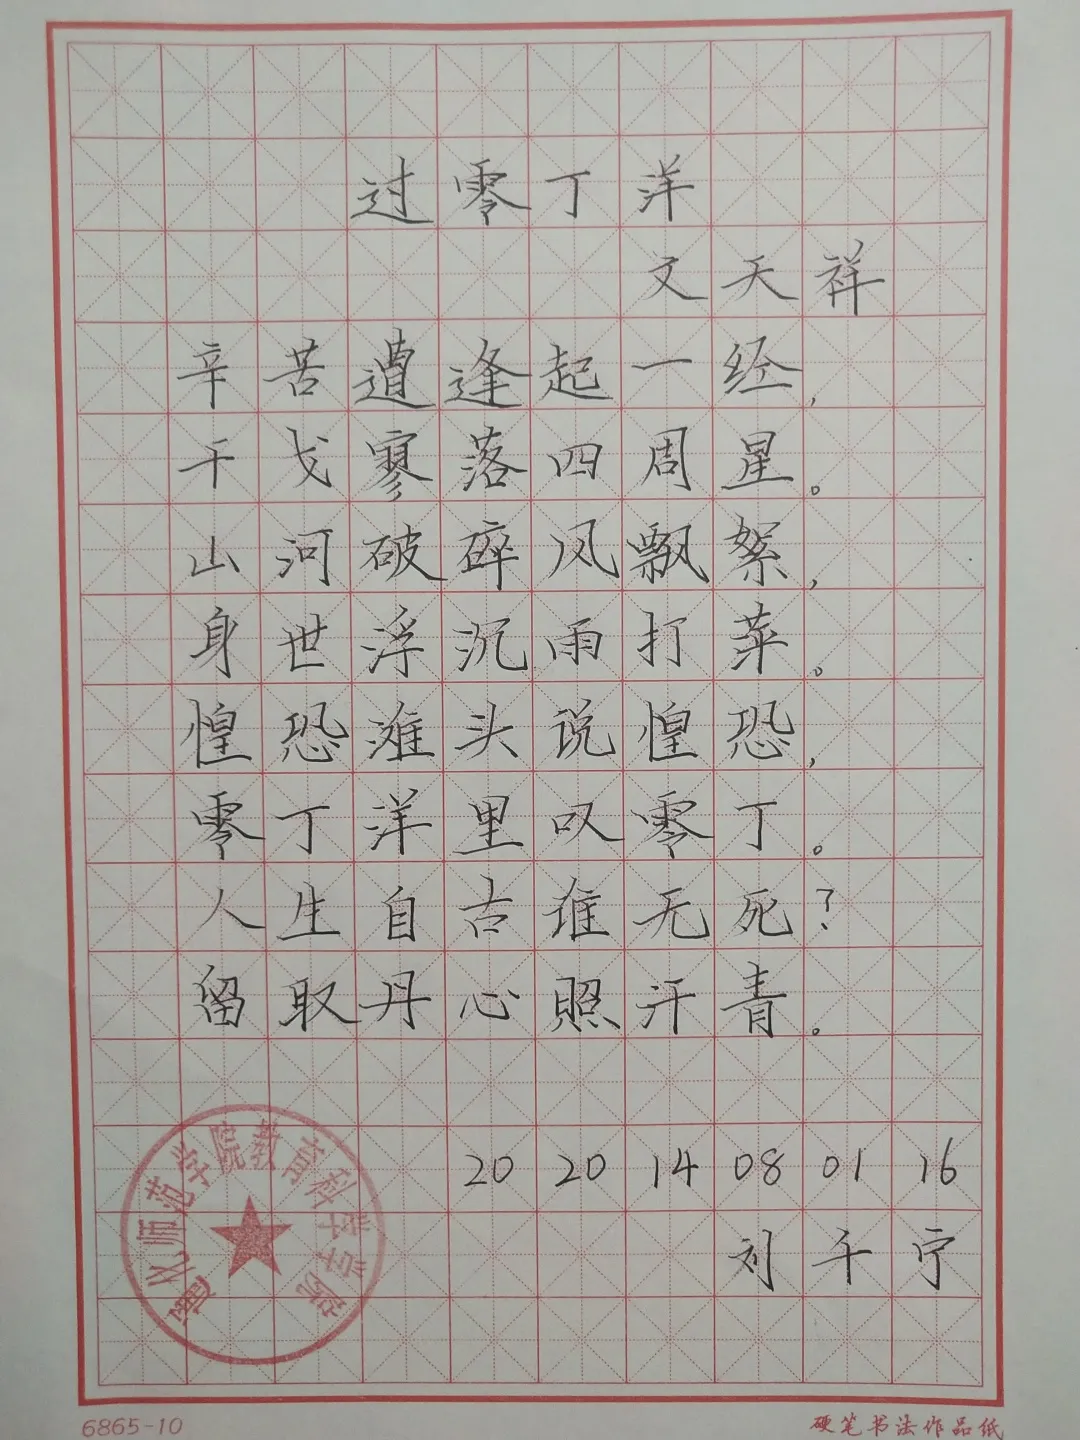 过零丁洋
文天祥
辛苦遭逢起一经,
干戈寥落四周星。
山河破碎风飘絮,
身世浮沉雨打萍。
惶恐滩头说惶恐,
零丁洋里叹零丁。
人生自古谁无死?
留取丹心照汗青。
20 20 14 08 01 16
刘千宁
遵义师范学院教育科学学院
6865-10
硬笔书法作品纸